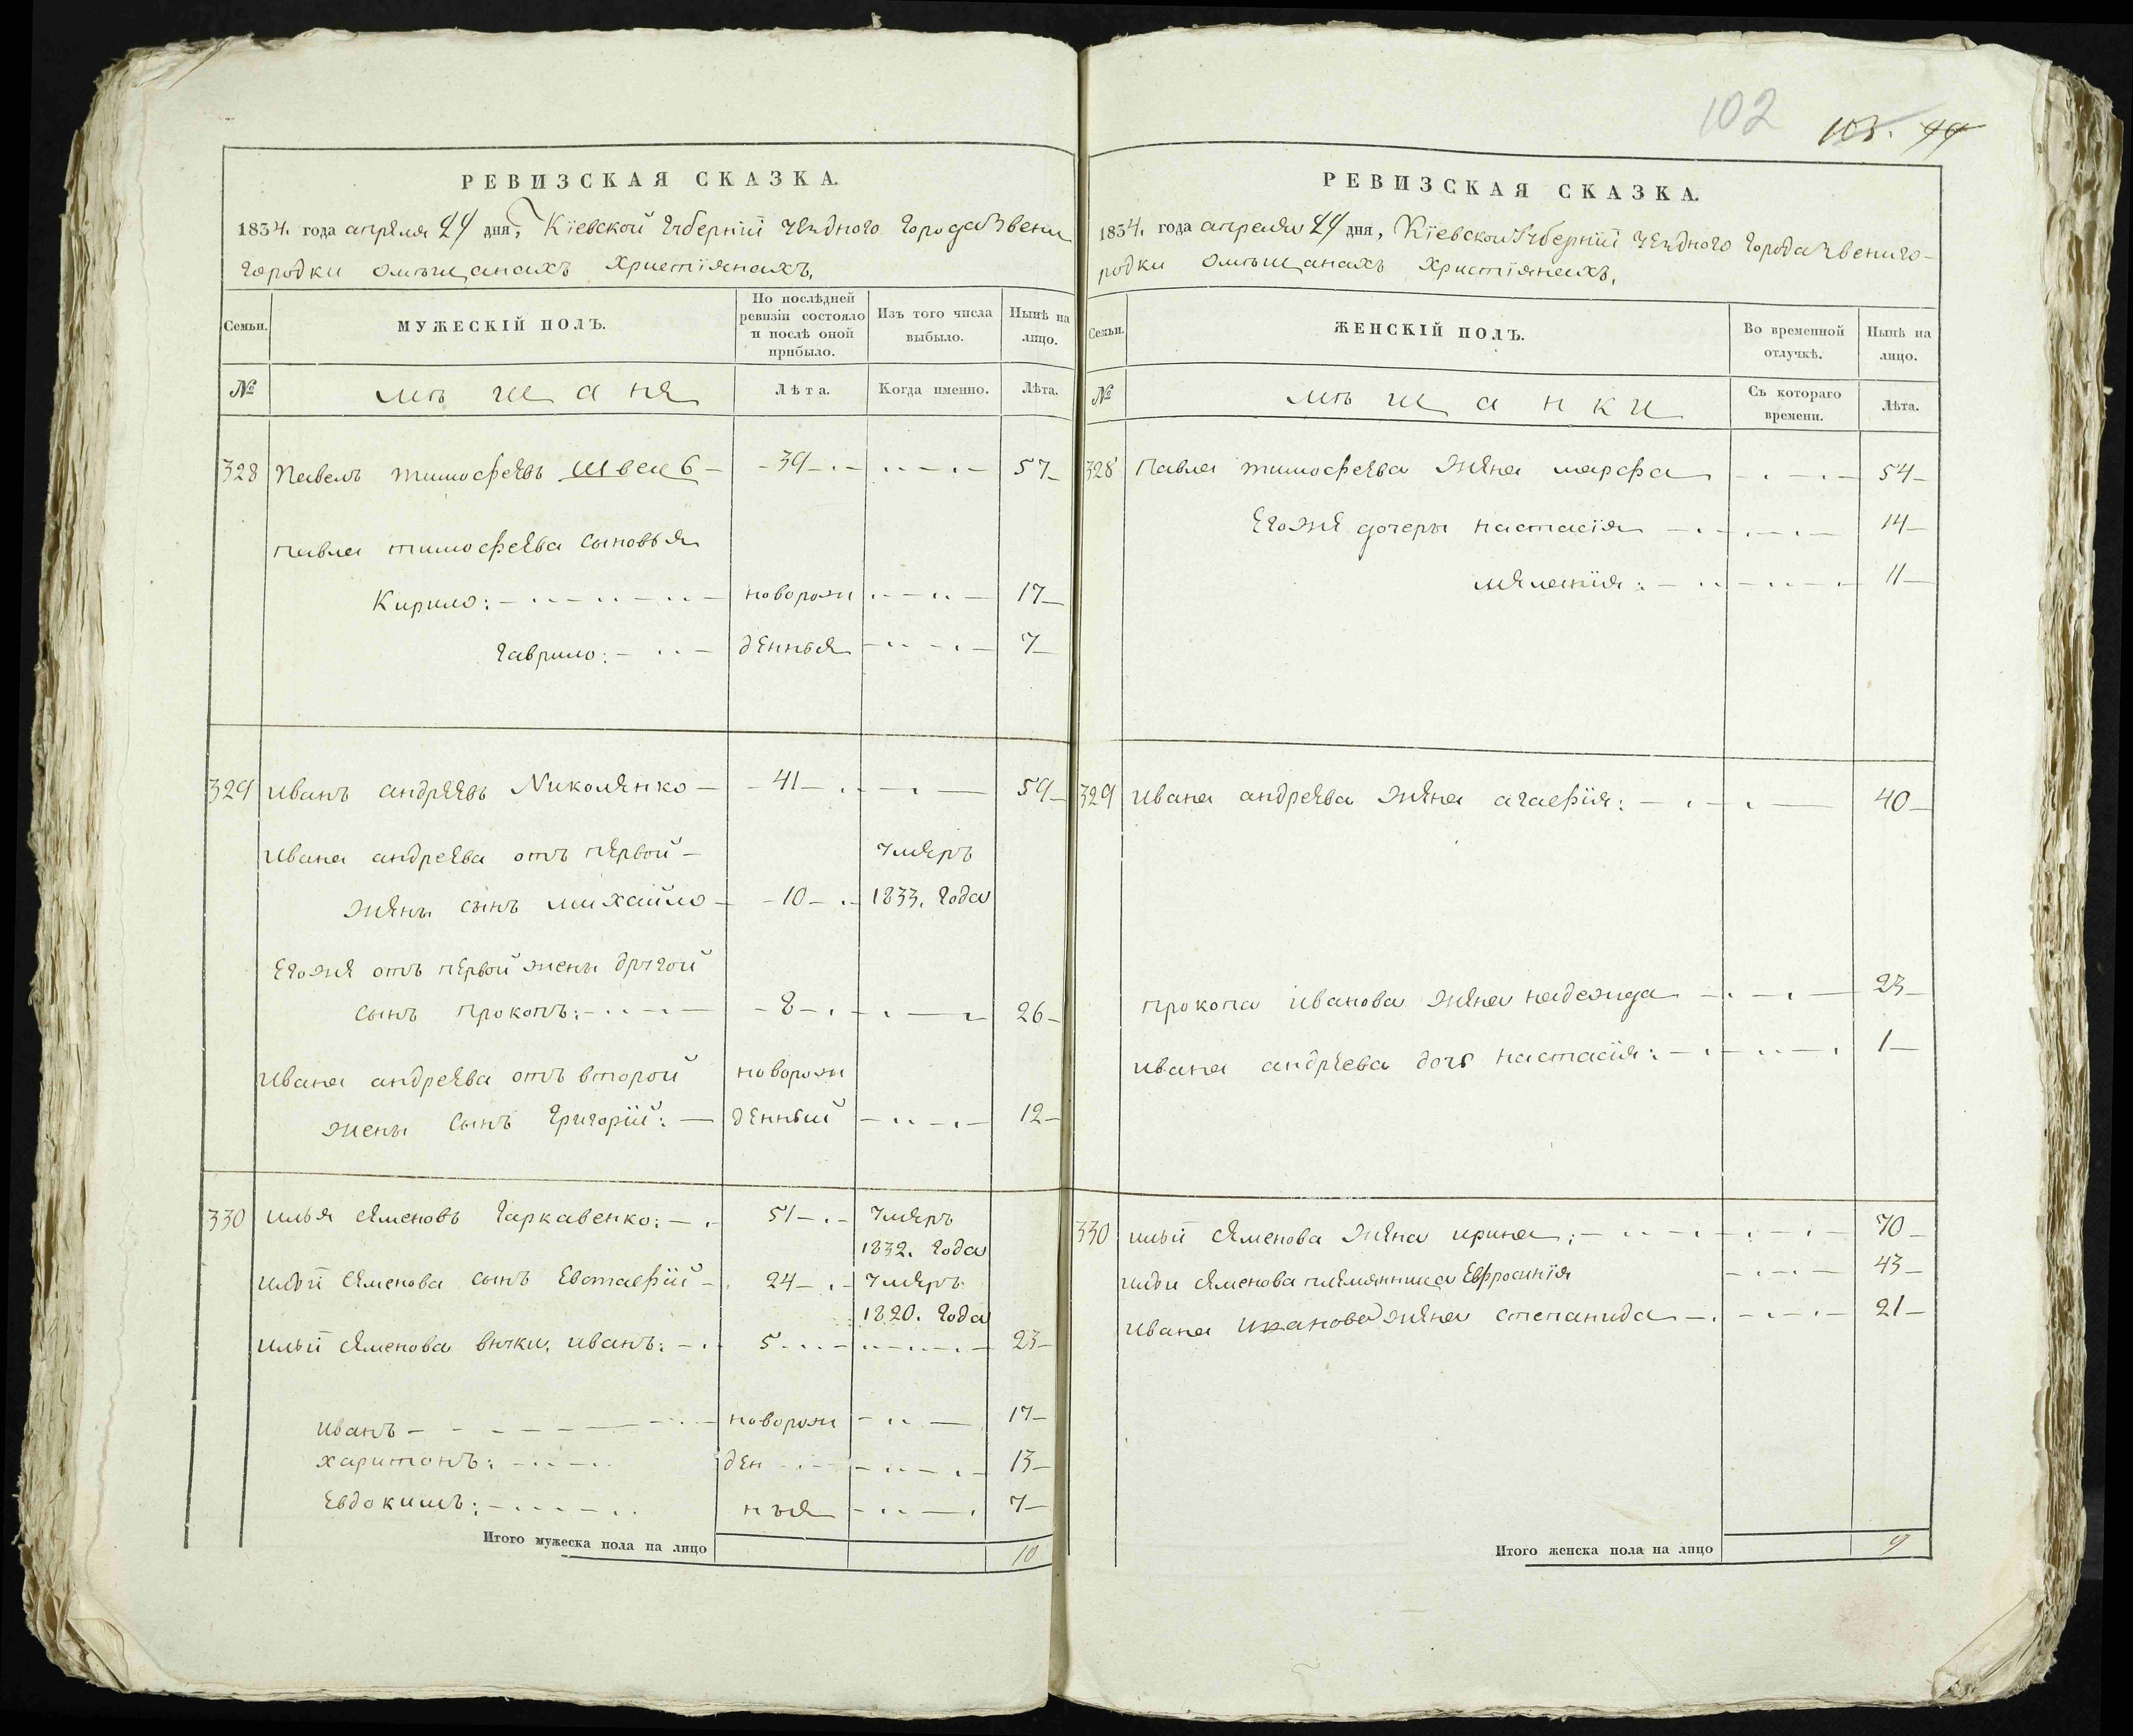 102 103. 44
РЕВИЗСКАЯ СКАЗКА.
1834. года апреля 24 дня, Кїевской Губернїи уезднаго города Звени
городки омѣщанахъ христїянахъ,
Семьи.
МУЖЕСКІЙ ПОЛЪ.
По послѣдней ревизіи состояло и послѣ оной прибыло.
Изъ того числа выбыло.
Нынѣ на лицо.
№
мѣщане
Лѣта.
Когда именно.
Лѣта.
328 Павелъ тимофеевъ швец 6 — 39 57
Павла тимофеева сыновья
Кирило: новорож 17
Гаврило: денные 7
329 Иванъ андреевъ Николенко — 41 59
Ивана андреева отъ первой умеръ
жены сынъ михайло 10 1833. года
Егоже отъ первой жены другой
сынъ прокопъ: 8 26
Ивана андреева отъ второй новорож
жены сынъ григорїй: денный 12
330 илья семеновъ Гаркавенко: 51 умеръ
1832. года
ильи семенова сынъ Евстафїй 24 умеръ
1820. года
ильи семенова внуки, иванъ: 5 23
иванъ новорож 17
харитонъ: ден 13
Евдокимъ: ныя 7
Итого мужеска пола на лицо 10
РЕВИЗСКАЯ СКАЗКА.
1834. года апреля 24 дня, Кїевской Губернїи уезднаго города Звениго-
родки омѣщанахъ христїянахъ,
Семьи.
ЖЕНСКІЙ ПОЛЪ.
Во временной отлучкѣ.
Нынѣ на лицо.
№
мѣщанки
Съ котораго времени.
Лѣта.
328 Павла тимофеева жена марфа 54
Егоже дочери настасїя 14
меланїя: 11
329 Ивана андреева жена агафїя: 40
прокопа иванова жена надежда 23
ивана андреева дочь настасїя: 1
330 ильи семенова жена ирина: 70
ильи семенова племянница Евфросинїя 43
ивана иванова жена степанида 21
Итого женска пола на лицо 9